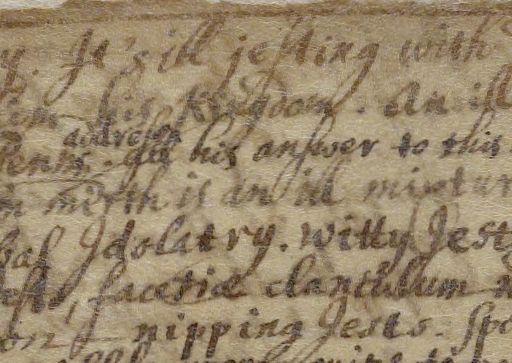 y. It's ill jesting with
him his Kingdom. An ill
addresses
his answer to this
mirth is an ill mixtur
Idolatry. witty Jest
facetiæ clanculum
on nipping Jests. Spo